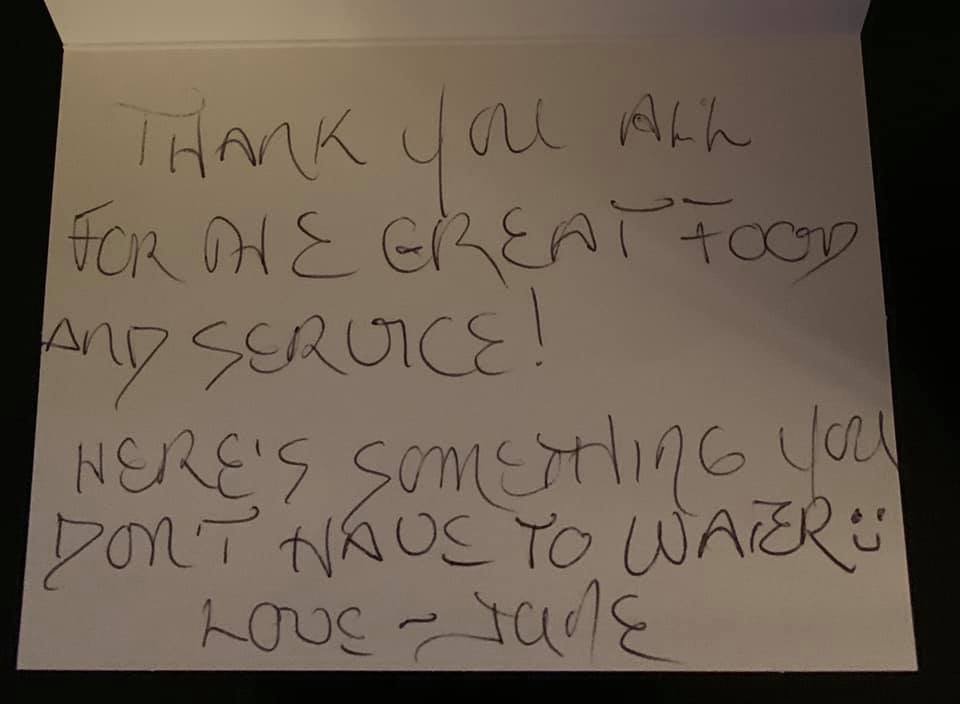 THANK YOU ALL
FOR THE GREAT FOOD
AND SERVICE!
HERE'S SOMETHING YOU
DON'T HAVE TO WATER :)
LOVE ~ JUNE